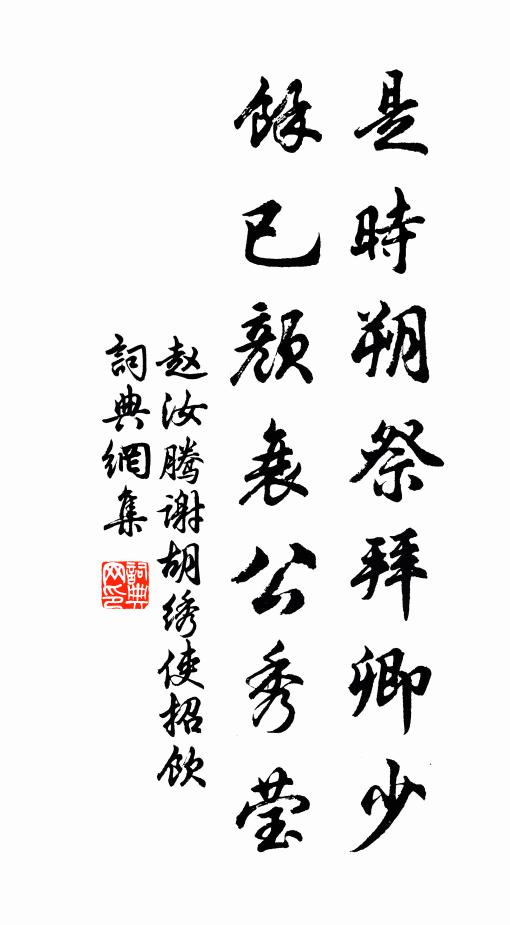 是時朔祭拜卿少
餘已顏衰公秀瑩
赵汝腾谢胡绣使招饮
詞典網集
詞典网印